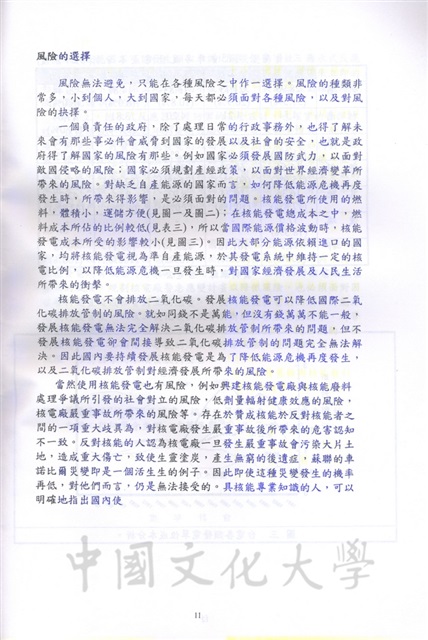 風險的選擇
風險無法避免，只能在各種風險之中作一選擇。風險的種類非
常多，小到個人，大到國家，每天都必須面對各種風險，以及對風
險的抉擇。
一個負責任的政府，除了處理日常的行政事務外，也得了解未
來會有那些事必件會威脅到國家的發展以及社會的安全，也就是政
府得了解國家的風險有那些。例如國家必須發展國防武力，以面對
敵國侵略的風險；國家必須規劃產經政策，以面對世界經濟變革所
帶來的風險。對缺乏自產能源的國家而言，如何降低能源危機再度
發生時，所帶來得影響，是必須面對的問題。核能發電所使用的燃
料，體積小，運儲方便(見圖一及圖二)；在核能發電總成本之中，燃
料成本所佔的比例較低(見表三)，所以當國際能源價格波動時，核能
發電成本所受的影響較小(見圖三)。因此大部分能源依賴進口的國
家，均將核能發電視為準自產能源，於其發電系統中維持一定的核
電比例，以降低能源危機一旦發生時，對國家經濟發展及人民生活
所帶來的衝擊。
核能發電不會排放二氧化碳。發展核能發電可以降低國際二氧
化碳排放管制的風險。就如同錢不是萬能，但沒有錢萬萬不能一般，
發展核能發電無法完全解決二氧化碳排放管制所帶來的問題，但不
發展核能發電卻會間接導致二氧化碳排放管制的問題完全無法解
決。因此國內要持續發展核能發電是為了降低能源危機再度發生，
以及二氧化碳排放管制對經濟發展所帶來的風險。
當然使用核能發電也有風險，例如興建核能發電廠與核能廢料
處理爭議所引發的社會對立的風險，低劑量輻射健康效應的風險，
核電廠嚴重事故所帶來的風險等。存在於贊成核能於反對核能者之
間的一項重大歧異為，對核電廠發生嚴重事故後所帶來的危害認知
不一致。反對核能的人認為核電廠一旦發生嚴重事故會污染大片土
地，造成重大傷亡，致使生靈塗炭，產生無窮的後遺症，蘇聯的車
諾比爾災變即是一個活生生的例子。因此即使這種災變發生的機率
再低，對他們而言，仍是無法接受的。具核能專業知識的人，可以
明確地指出國內使
中國文化大學
11